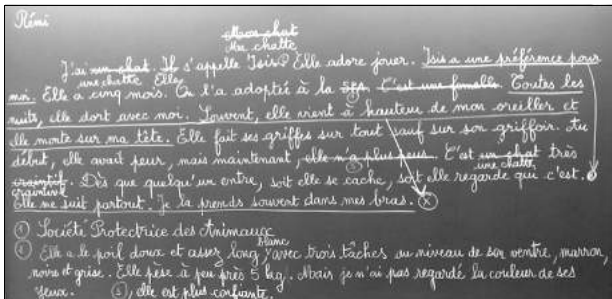 Rémi
Mon chat
Ma chatte
J'ai un chat. Il s'appelle Isis. Elle adore jouer. Isis a une préférence pour
une chatte Elle
moi. Elle a cinq mois. On l'a adoptée à la SPA. C'est une femelle. Toutes les
nuits, elle dort avec moi. Souvent, elle vient à hauteur de mon oreiller et
elle monte sur ma tête. Elle fait ses griffes sur tout sauf sur son griffoir. Au
début, elle avait peur, mais maintenant, elle n'a plus peur. C'est un chat très
une chatte
craintif. Dès que quelqu'un entre, soit elle se cache, soit elle regarde qui c'est.
craintive
Elle me suit partout. Je la prends souvent dans mes bras.
① Société Protectrice des Animaux
blanc
② Elle a le poil doux et assez long, avec trois tâches au niveau de son ventre, marron,
noire et grise. Elle pèse à peu près 5 kg. Mais je n'ai pas regardé la couleur de ses
yeux. ③, elle est plus confiante.